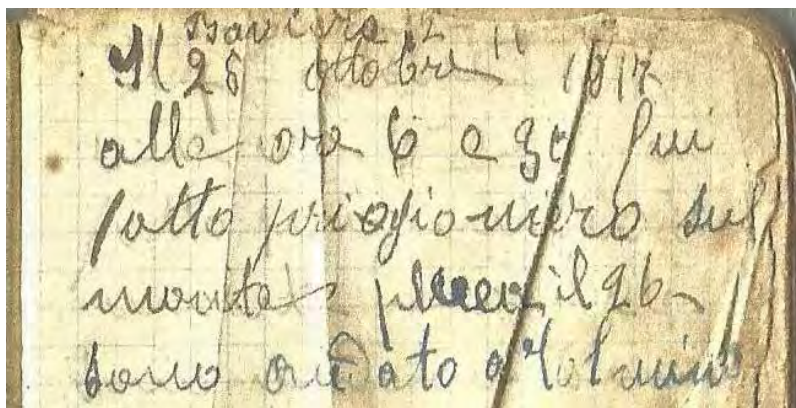 Baviera 12 11
Il 25 ottobre 1917
alle ore 6 e 30 fui
fatto priogioniero sul
monte il 26
sono andato a Tolmino